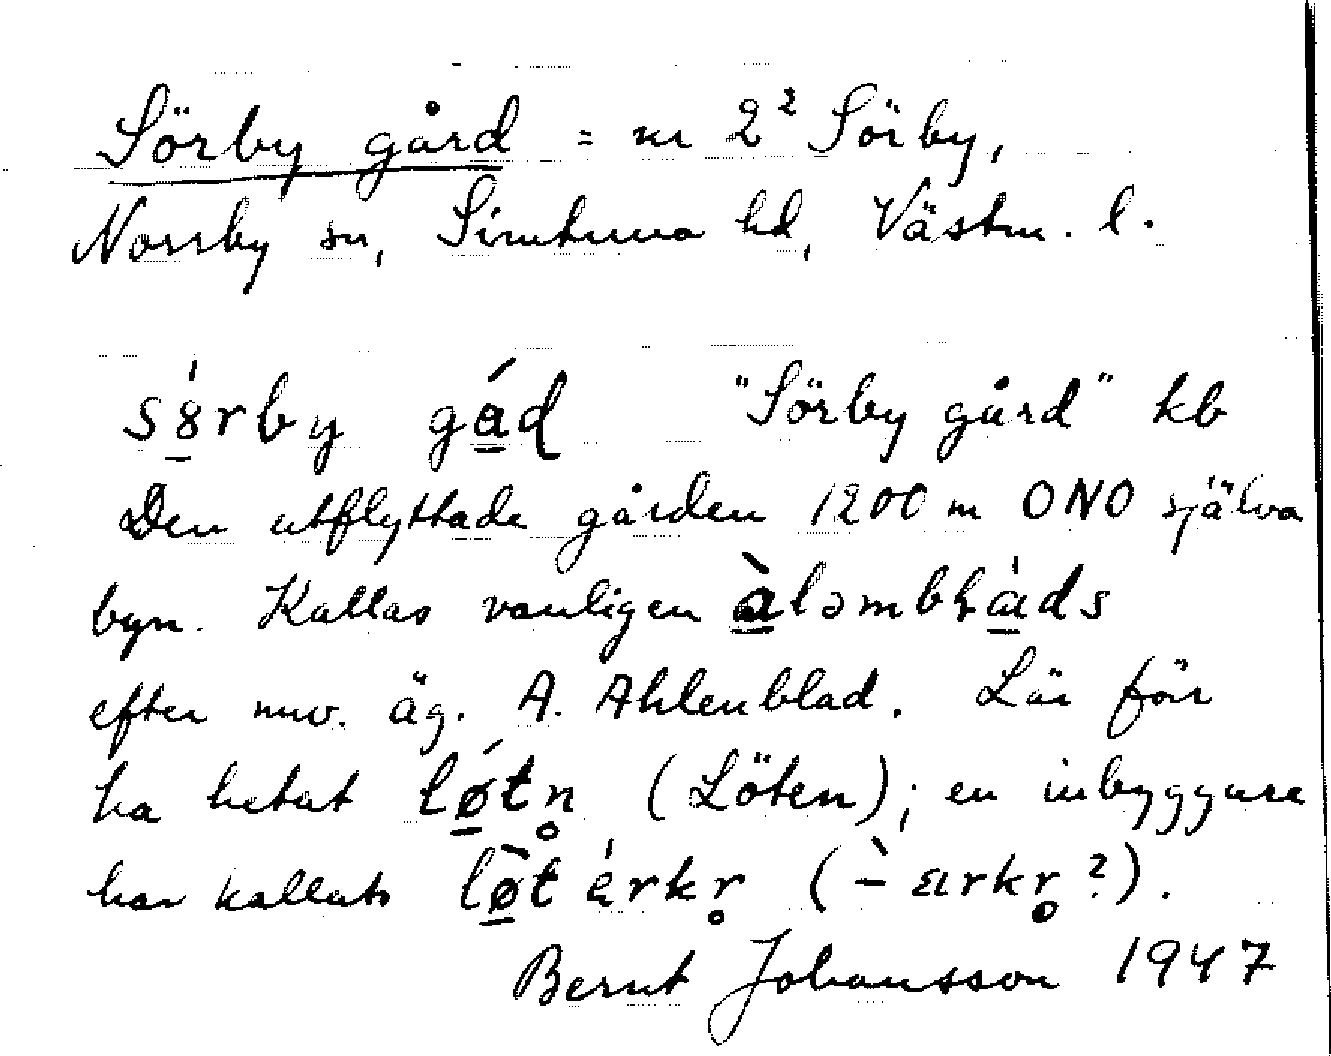 Sörby gård = nr 2² Sörby,
Norrby sn, Simtuna hd, Västm. l.
sȣ́rby gád "Sörby gård" kb
Den utflyttade gården 1200 m ONO själva
byn. Kallas vanligen àləmbɫáds
efter nuv. äg. A. Ahlenblad. Lär förr
ha hetat lǿtn̥ (Löten); en inbyggare
har kallats lø̀t érkr̥ (-̀ærkr̥?).
Bernt Johansson 1947